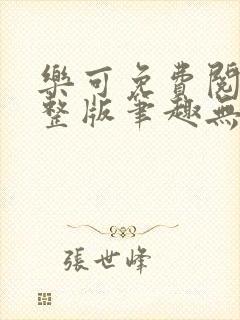 樂可免費閱
整版筆趣無
張世峰